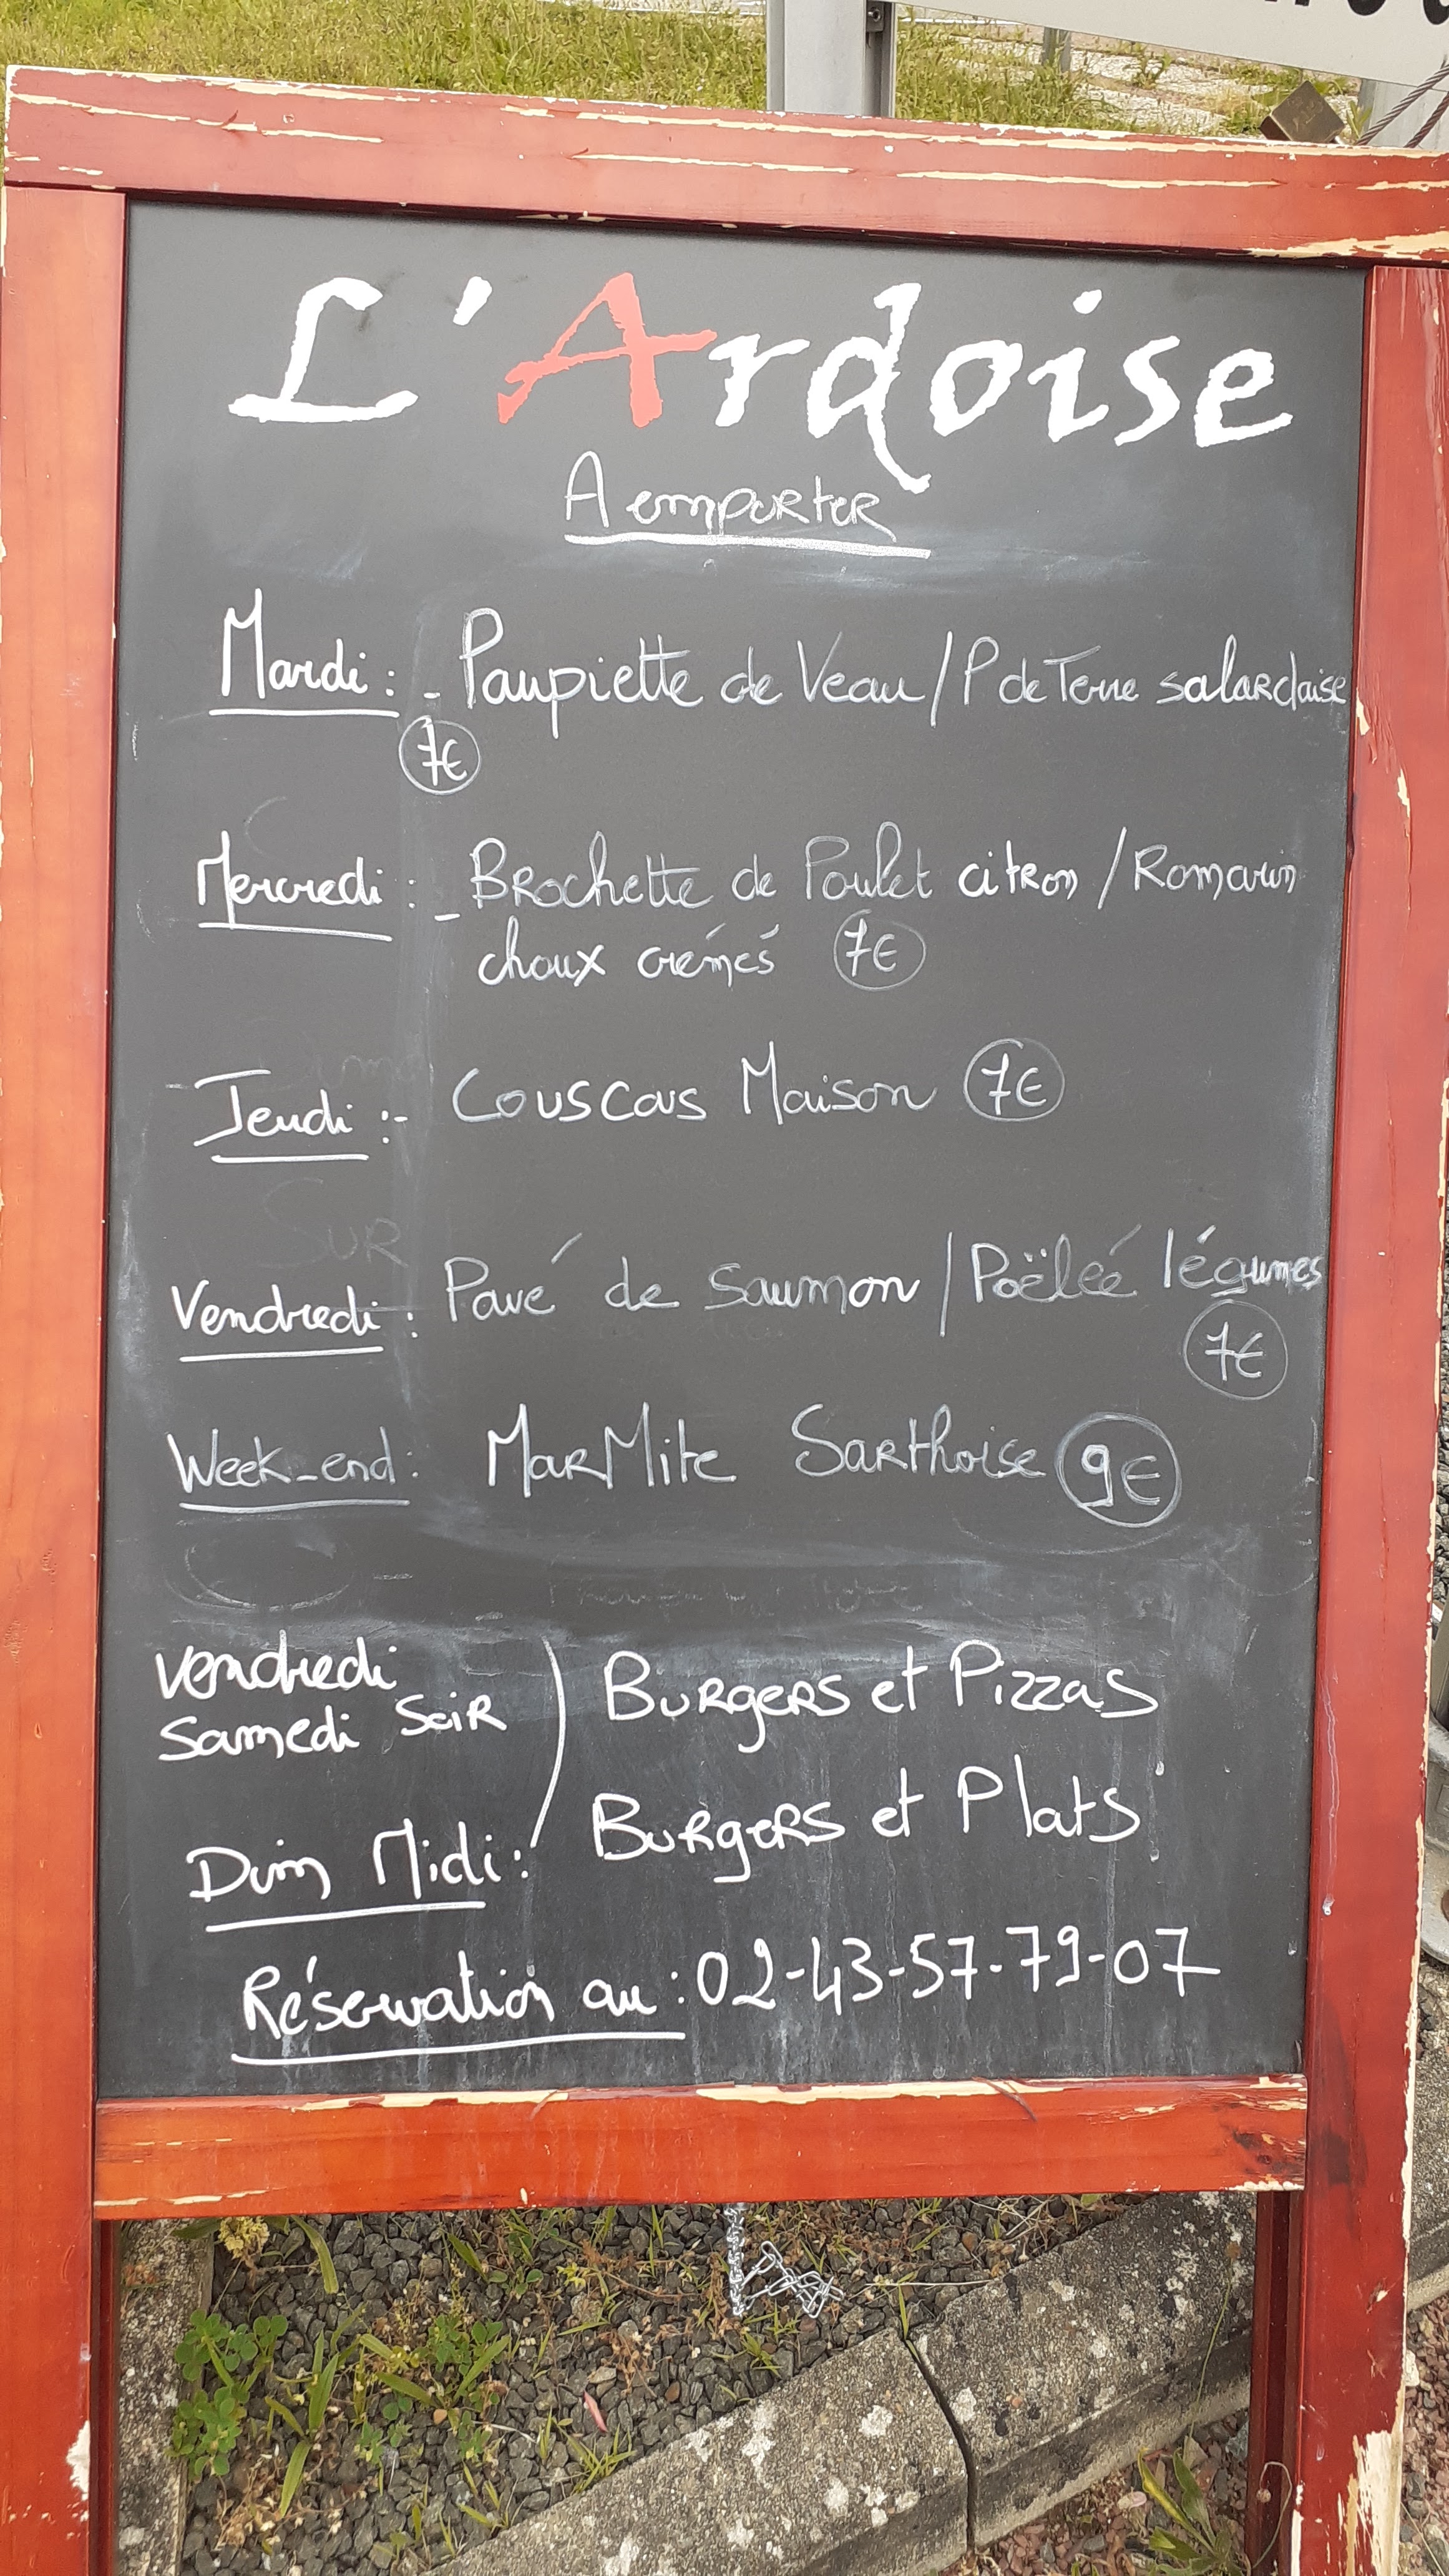 L'Ardoise
A emporter
Mardi : - Paupiette de Veau / P de Terre salardaise
7€
Mercredi : - Brochette de Poulet citron / Romarin
choux crémés 7€
Jeudi :- Couscous Maison 7€
Vendredi : Pavé de saumon / Poëleé légumes
7€
Week-end : Marmite Sarthoise 9€
Vendredi
Samedi Soir ) Burgers et Pizzas
Dim Midi : Burgers et Plats
Réservation au : 02-43-57-79-07